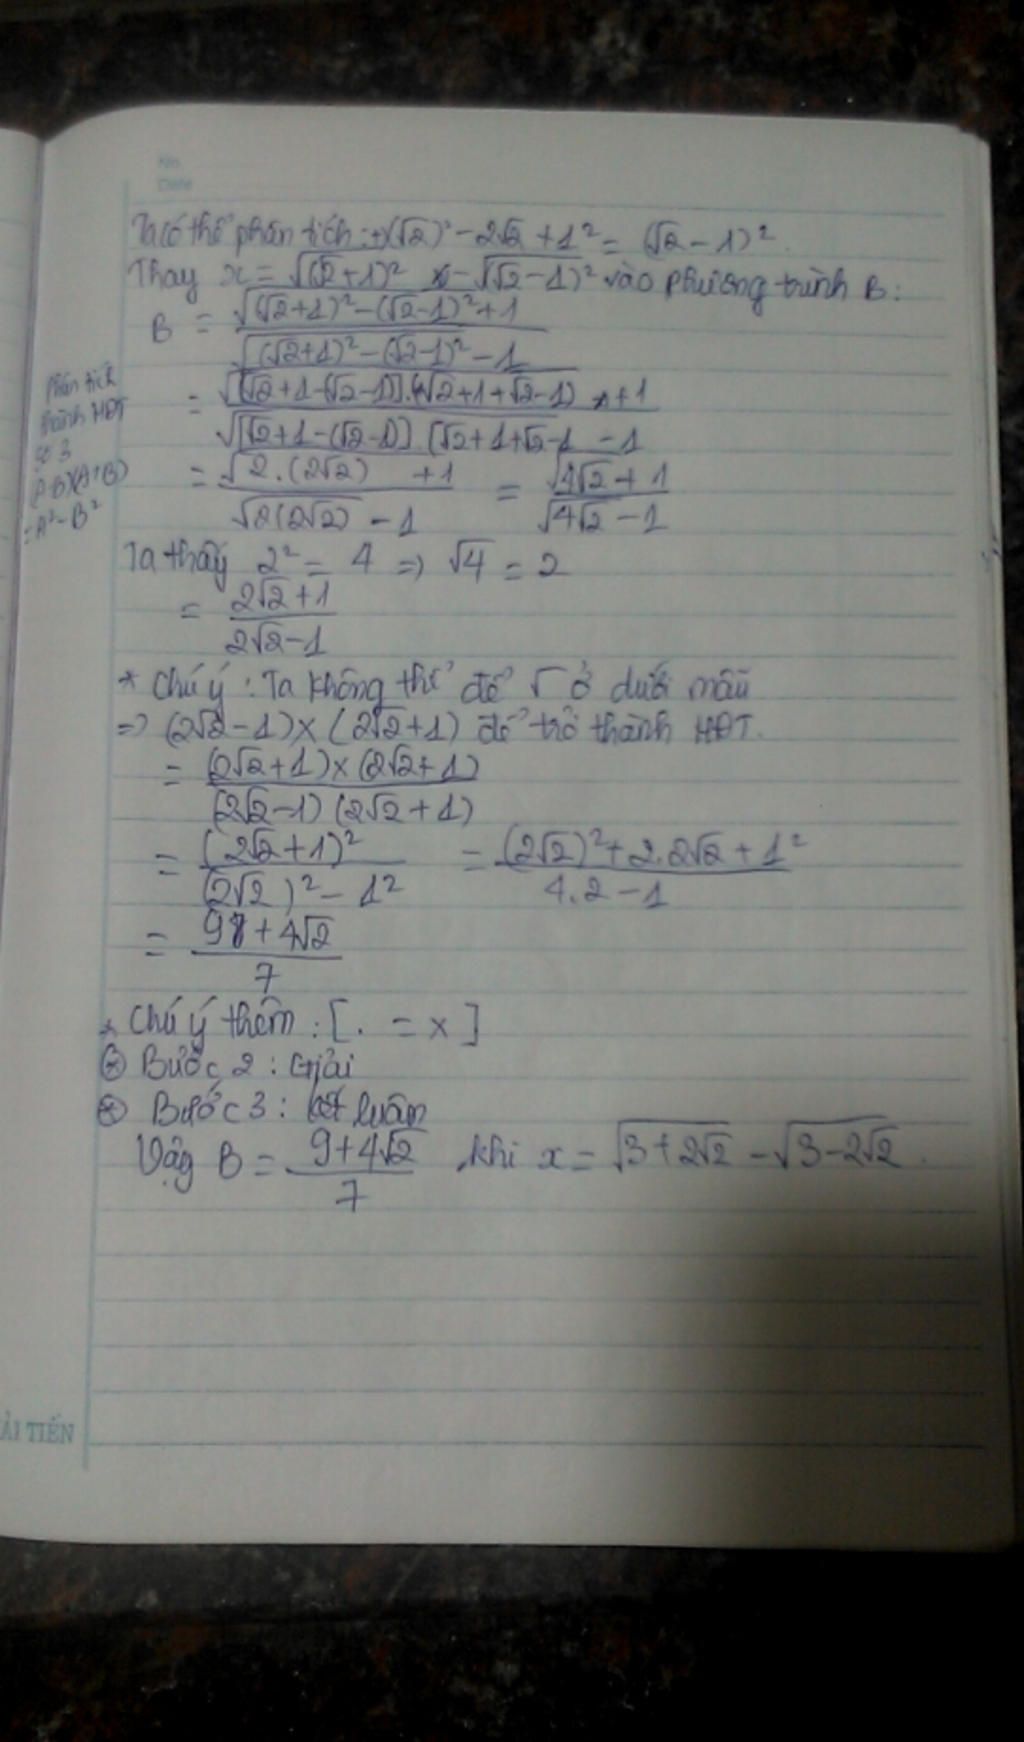 No.
Date
Ta có thể phân tích: +(√2)² - 2√2 + 1² = (√2 - 1)².
Thay x = √(√2+1)² - √(√2-1)² vào phương trình B:
B = √(√2+1)² - (√2-1)² + 1
√(√2+1)² - (√2-1)² - 1
Phân tích
thành HĐT
số 3
(A-B)(A+B)
= A² - B²
= √[√2+1-(√2-1)].(√2+1+√2-1) + 1
√[√2+1-(√2-1)].[√2+1+√2-1 - 1
= √2.(2√2) + 1 = √4√2 + 1
√2(2√2) - 1 √4√2 - 1
Ta thấy 2² = 4 => √4 = 2
= 2√2+1
2√2-1
* Chú ý: Ta không thể để √ ở dưới mẫu
=> (2√2-1)×(2√2+1) để trở thành HĐT.
= (2√2+1)×(2√2+1)
(2√2-1)(2√2+1)
= (2√2+1)² = (2√2)²+2.2√2+1²
(2√2)² - 1² 4.2 - 1
= 9+4√2
7
* Chú ý thêm: [. = x]
Bước 2: Giải
Bước 3: kết luận
Vậy B = 9+4√2 khi x = √3+2√2 - √3-2√2.
7
ẢI TIẾN